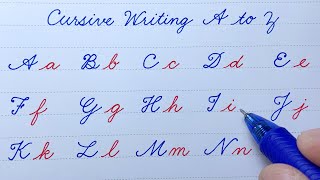 Cursive Writing A to Z
A a B b C c D d E e
F f G g H h I i J j
K k L l M m N n